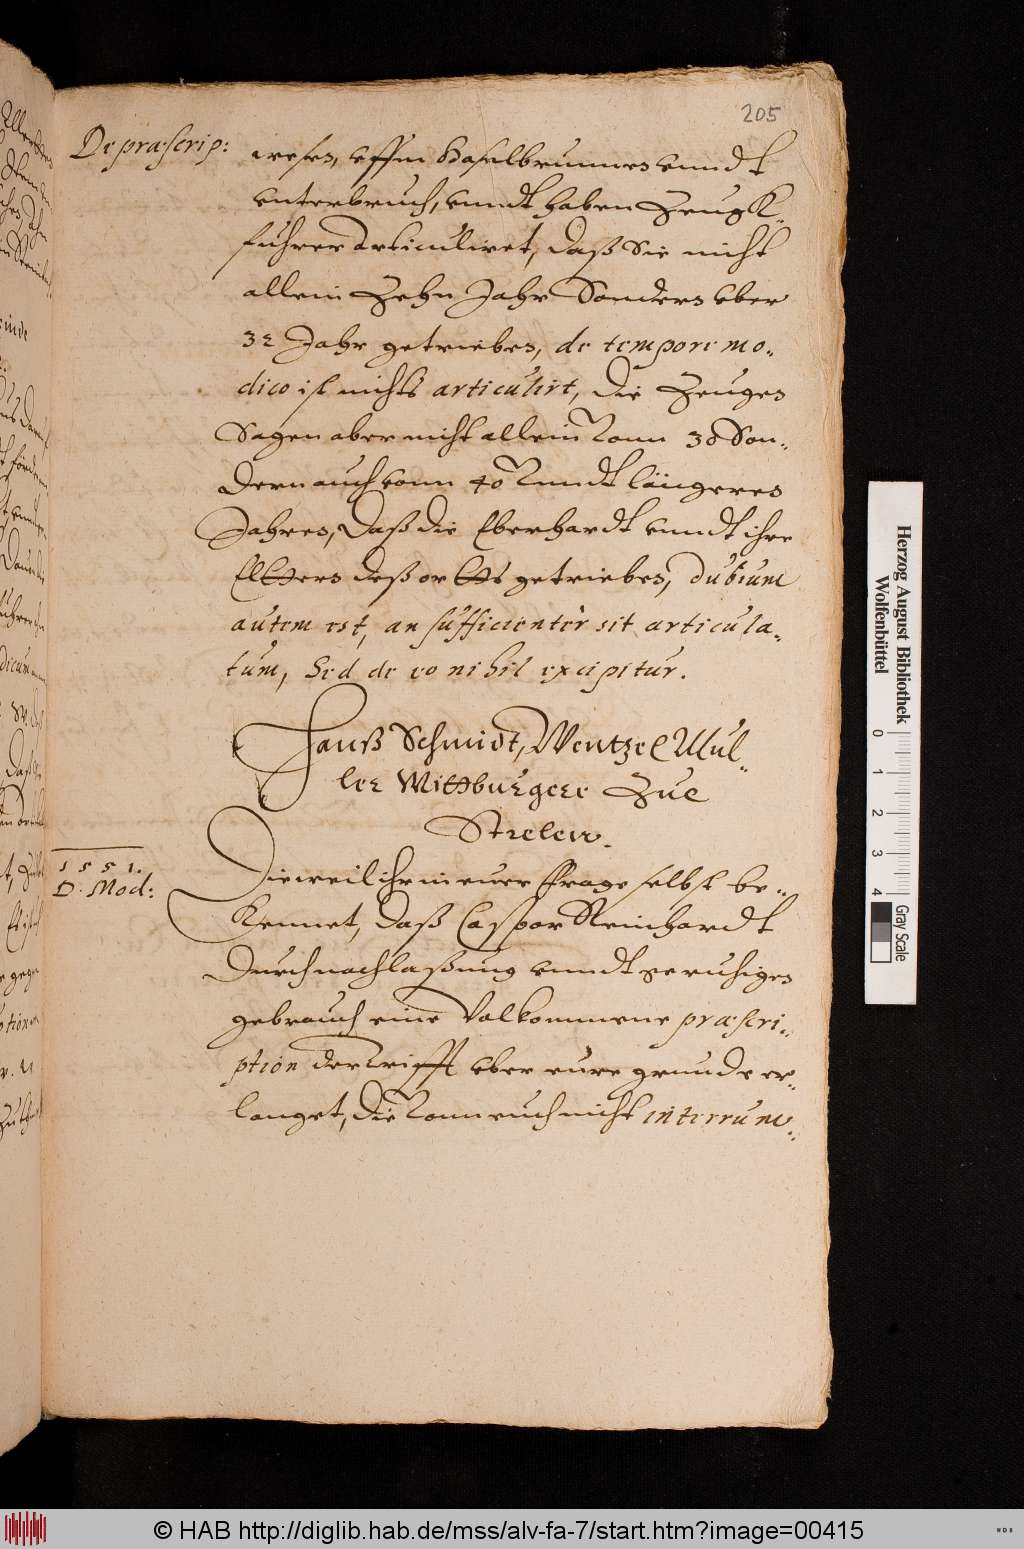 205
De præscrip:
weses, offen Haselbrunnes unndt
unterbruch, unndt haben Zeugk-
fuhrer articuliret, daß Sie nicht
allein Zehn Jahr Sonders uber
32 Jahr getriebes, de tempore mo-
dico ist nichts articulirt, die Zeuges
Sagen aber nicht allein vonn 30 Son-
dern auch vonn 40 unndt längeres
Jahres, Daß die Eberhardt unndt ihre
Elters deß orths getriebes, dubium
autem est, an sufficienter sit articula-
tum, Sed de eo nihil excipitur.
Hanß Schmidt, Wentzel Mul-
ler Mittburgere Zue
Strelen.
1551.
D. Mod:
Dieweil ihr in euer Frage selbst be-
kennet, daß Caspar Reinhardt
durch nachlaßung unndt geruhiges
gebrauch eine Volkommene præscri-
ption der Trifft uber eure grunde er-
langet, die vonn euch nicht interrum-
Herzog August Bibliothek
Wolfenbüttel
0 1 2 3 4
Gray Scale
© HAB http://diglib.hab.de/mss/alv-fa-7/start.htm?image=00415